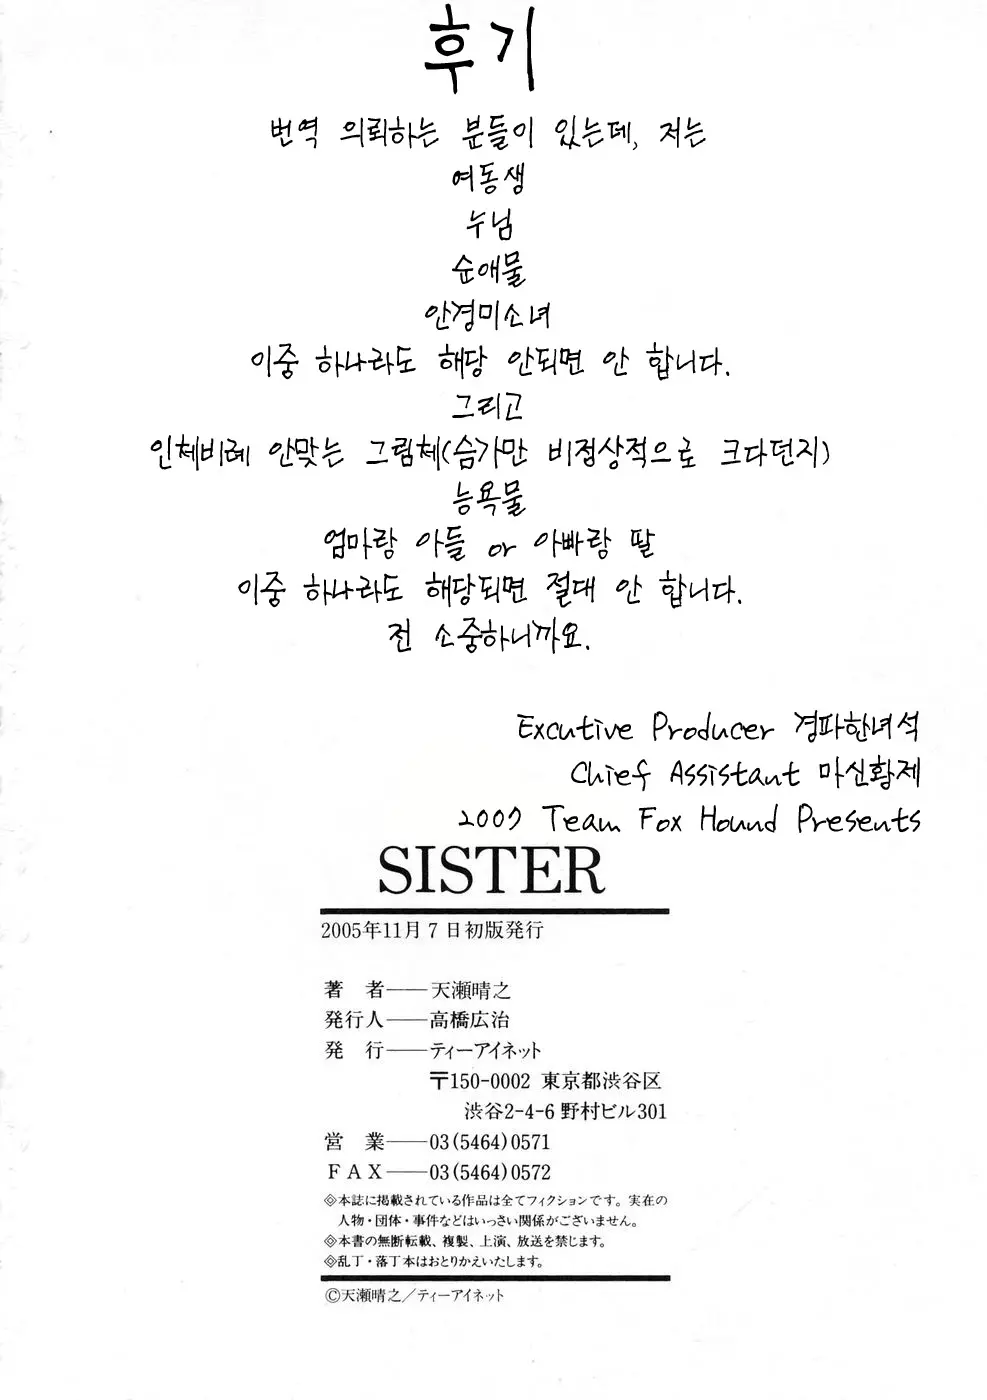 후기
번역 의뢰하는 분들이 있는데, 저는
여동생
누님
순애물
안경미소녀
이중 하나라도 해당 안되면 안 합니다.
그리고
인체비례 안맞는 그림체(슴가만 비정상적으로 크다던지)
능욕물
엄마랑 아들 or 아빠랑 딸
이중 하나라도 해당되면 절대 안 합니다.
전 소중하니까요.
Excutive Producer 경파한녀석
Chief Assistant 마신황제
2007 Team Fox Hound Presents
SISTER
2005年11月7日初版発行
著 者――天瀬晴之
発行人――高橋広治
発 行――ティーアイネット
〒150-0002 東京都渋谷区
渋谷2-4-6 野村ビル301
営 業――03(5464)0571
FAX――03(5464)0572
◎本誌に掲載されている作品は全てフィクションです。実在の
人物・団体・事件などはいっさい関係がございません。
◎本書の無断転載、複製、上演、放送を禁じます。
◎乱丁・落丁本はおとりかえいたします。
©天瀬晴之／ティーアイネット